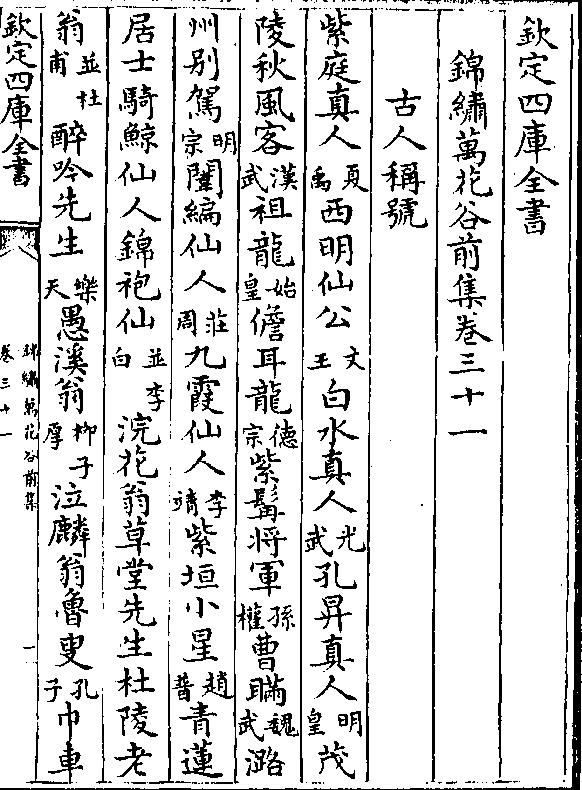 欽定四庫全書
錦繡萬花谷前集卷三十一
古人稱號
紫庭真人夏禹西明仙公文王白水真人光武孔昇真人明皇茂
陵秋風客漢武祖龍始皇儋耳龍德宗紫髯將軍孫權曹瞞魏武潞
州别駕明宗闡編仙人莊周九霞仙人李靖紫垣小星趙普青蓮
居士騎鯨仙人錦袍仙並李白浣花翁草堂先生杜陵老
翁並杜甫醉吟先生樂天愚溪翁柳子厚泣麟翁魯叟孔子巾車
欽定四庫全書
錦繡萬花谷前集
卷三十一
一